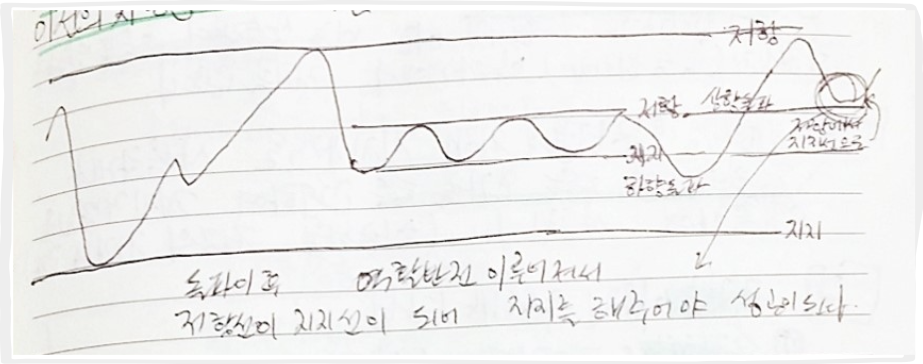 이전의 지
저항
저항 상향돌파
저항에서
지지선으로
지지
하향돌파
지지
돌파이후 역할반전 이루어져서
저항선이 지지선이 되어 지지를 해주어야 성립이된다.